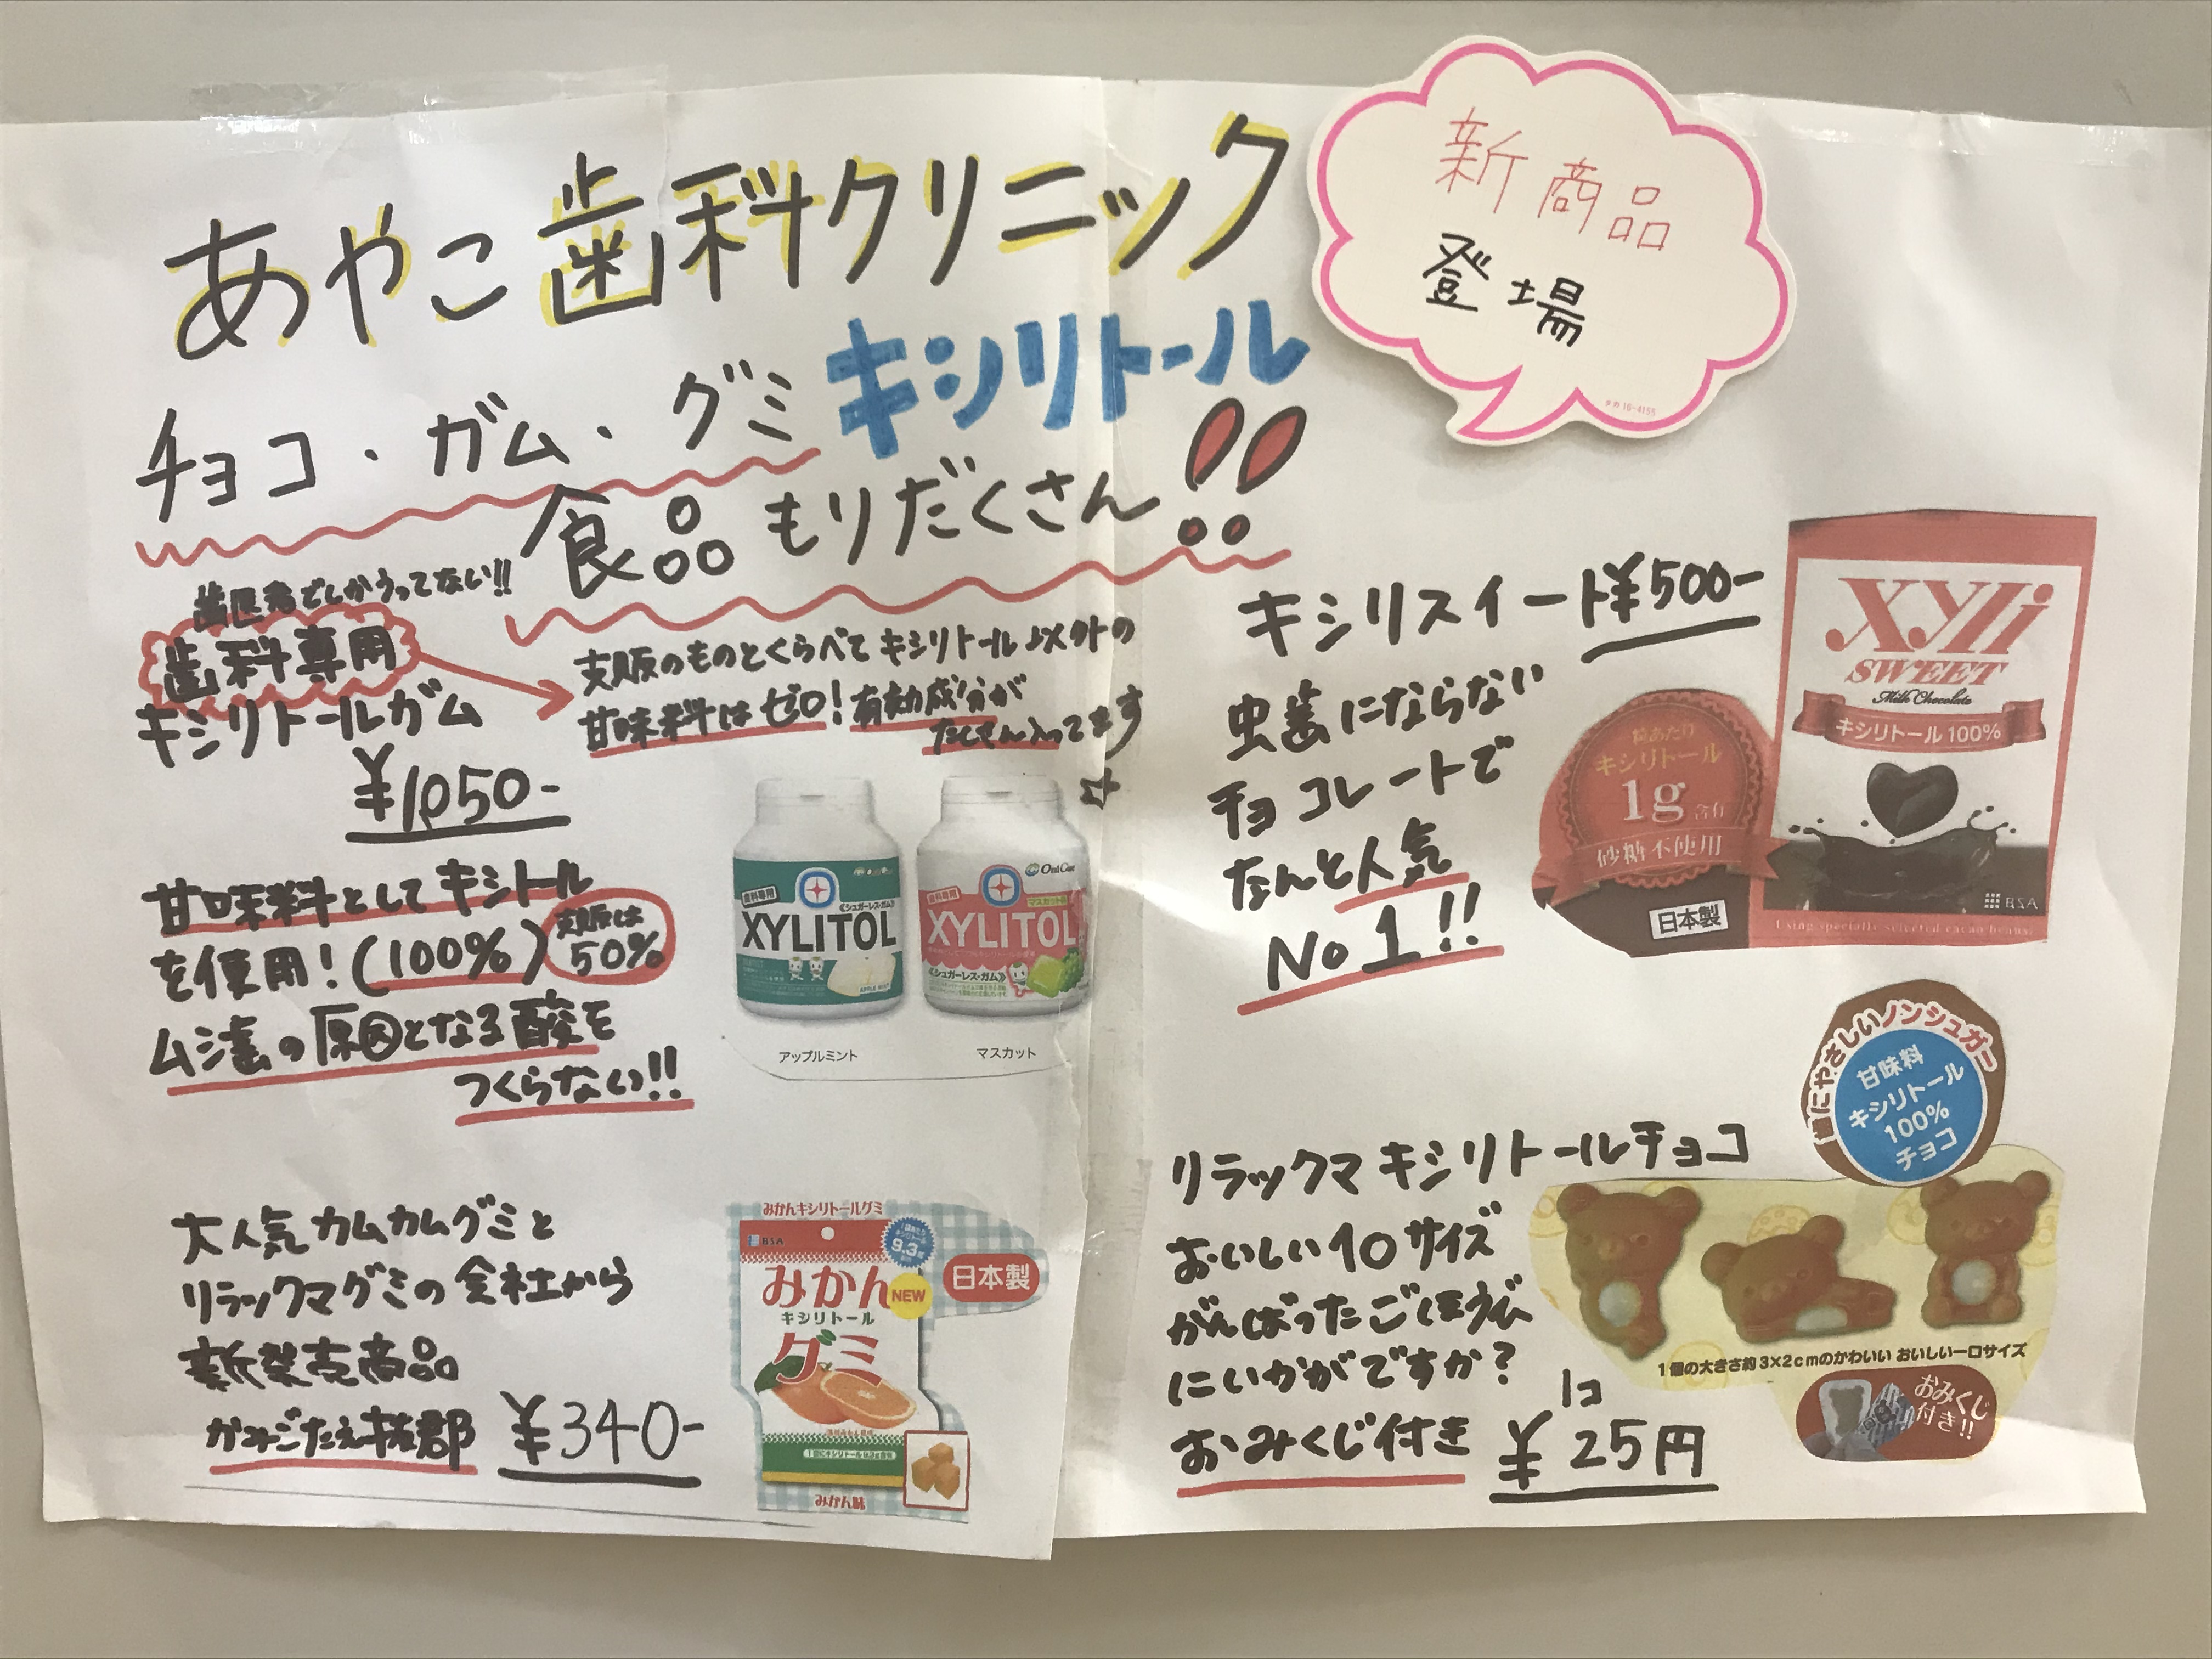 あやこ歯科クリニック
新商品
登場
チョコ・ガム・グミ キシリトール
食品もりだくさん!!
歯医者でしかうってない!!
歯科専用
キシリトールガム
¥1050-
支販のものとくらべて キシリトール以外の
甘味料はゼロ!有効成分が
たくさん入ってます
甘味料としてキシトール
を使用!(100%)
支販は
50%
ムシ歯の原因となる酸を
つくらない!!
歯科専用
《シュガーレス・ガム》
XYLITOL
APPLE MINT
アップルミント
Oral Care
歯科専用
マスカット味
XYLITOL
《シュガーレス・ガム》
マスカット
大人気カムカムグミと
リラックマグミの会社から
新発売商品
かみごたえ抜群
¥340-
みかんキシリトールグミ
BSA
9.3
みかん
NEW
キシリトール
グミ
みかん味
日本製
キシリスイート¥500-
虫歯にならない
チョコレートで
なんと人気
No1!!
XYLi
SWEET
Milk Chocolate
キシリトール100%
BSA
Using specially selected cacao beans
1粒あたり
キシリトール
1g含有
砂糖不使用
日本製
リラックマキシリトールチョコ
おいしい10サイズ
がんばったごほうび
にいかがですか?
おみくじ付き
1コ
¥25円
歯にやさしいノンシュガー
甘味料
キシリトール
100%
チョコ
1個の大きさ約3×2cmのかわいい おいしい一口サイズ
おみくじ
付き!!